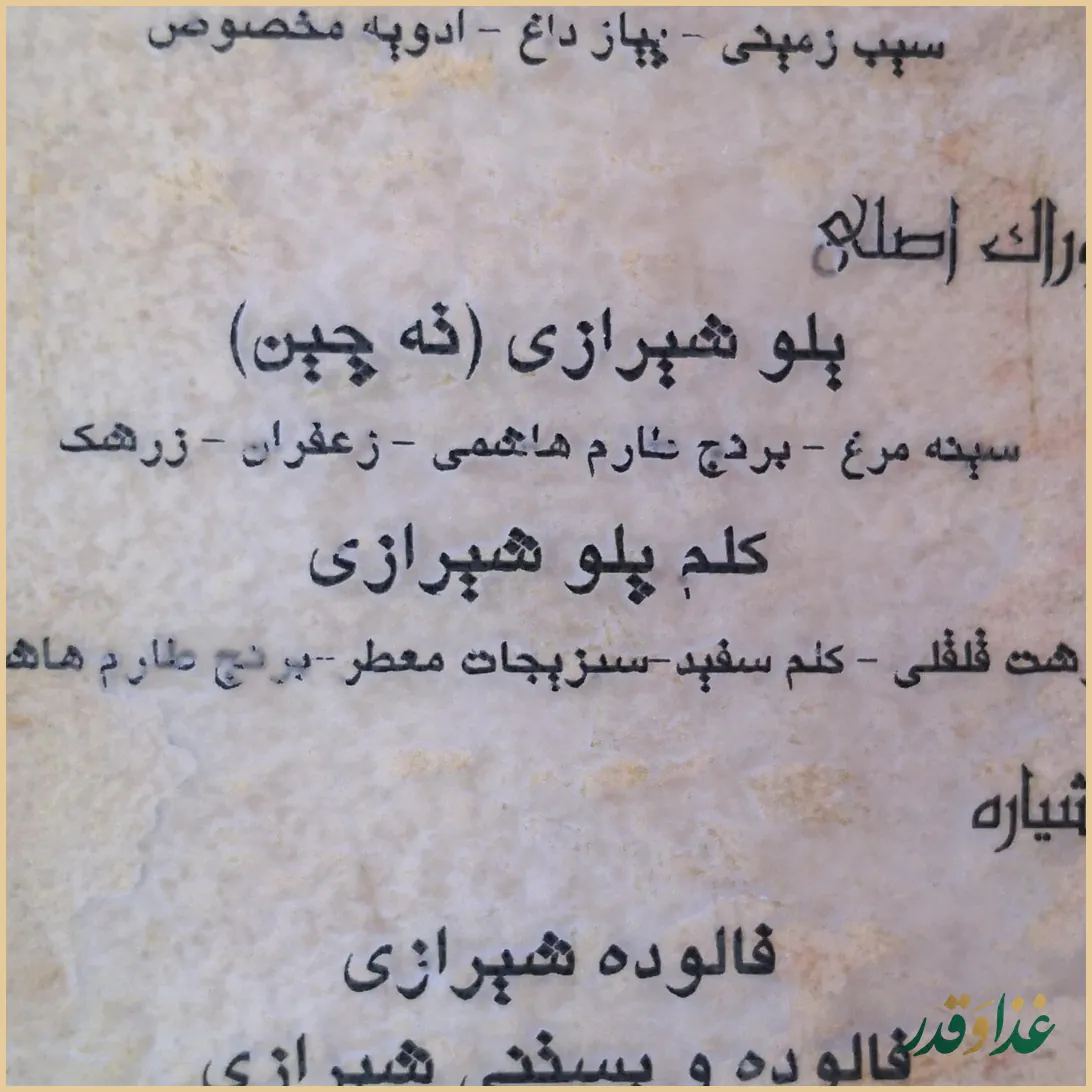 سیب زمینی - پیاز داغ - ادویه مخصوص
وراك اصلی
پلو شیرازی (ته چین)
سینه مرغ - برنج طارم هاشمی - زعفران - زرشک
کلم پلو شیرازی
قلقلی - کلم سفید-سبزیجات معطر-برنج طارم
فالوده شیرازی
فالوده و بستنی شیرازی
غذا و قدر